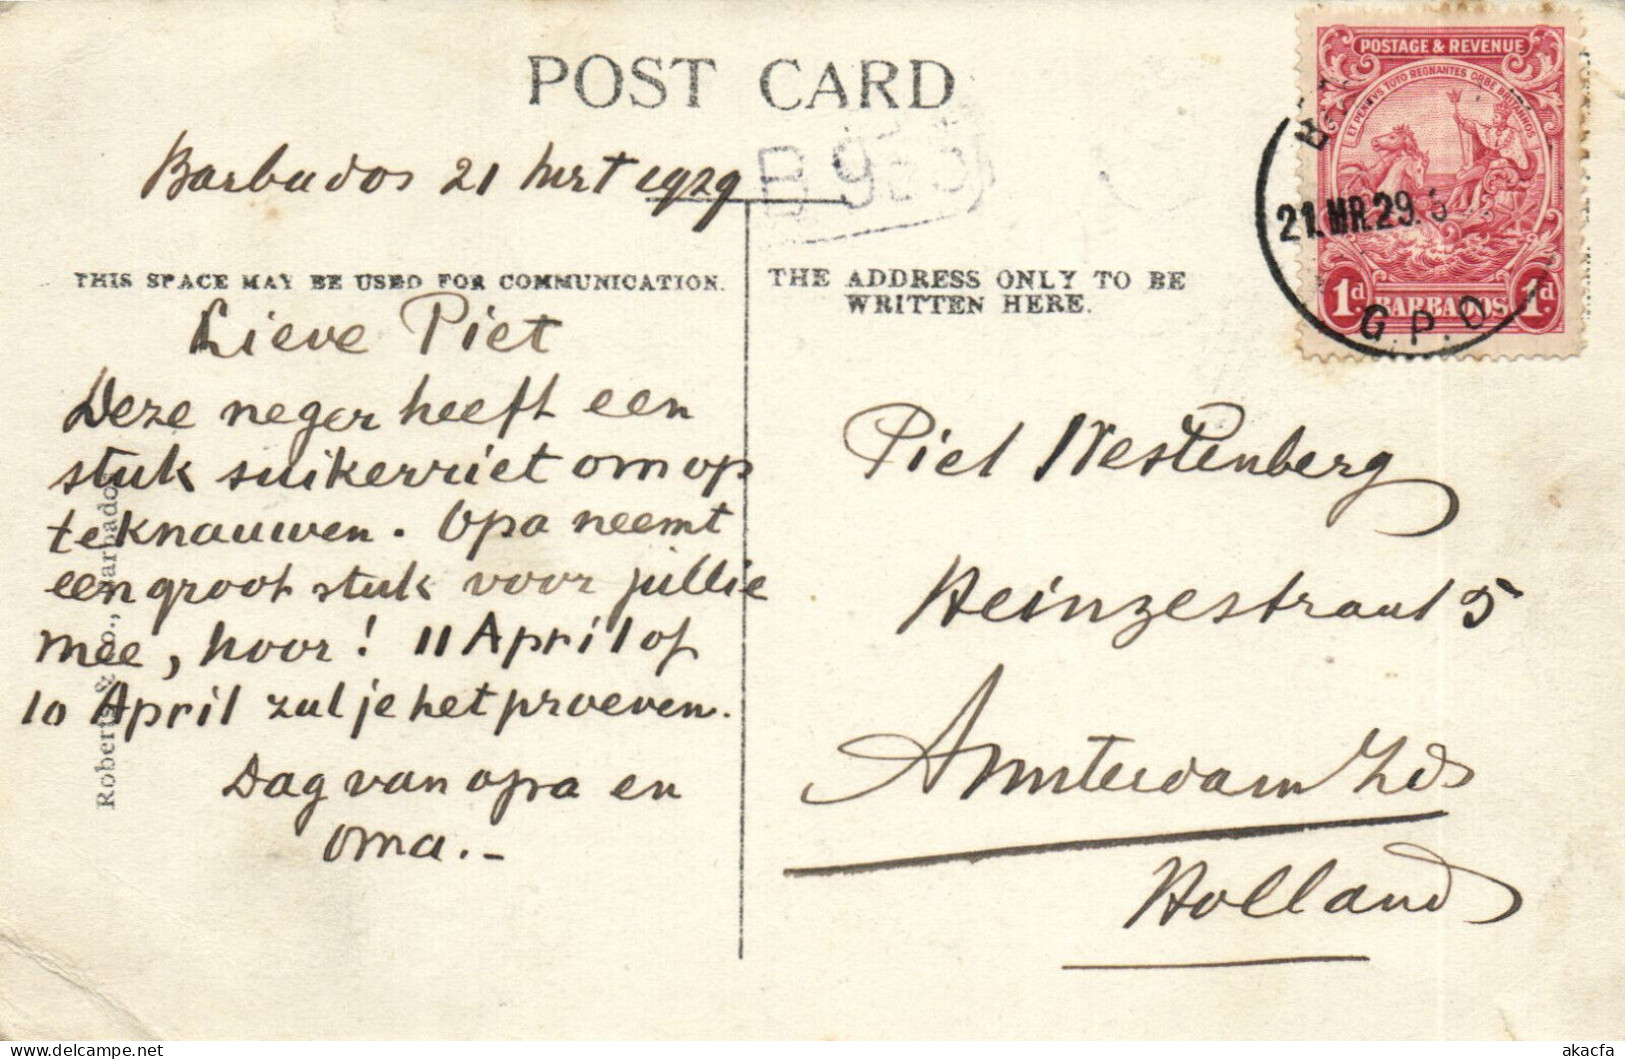 POST CARD
Barbados 21 Mrt 1929
THIS SPACE MAY BE USED FOR COMMUNICATION.
Lieve Piet
Deze neger heeft een
stuk suikerriet om op
te knauwen. Opa neemt
een groot stuk voor jullie
mee, hoor! 11 April of
10 April zul je het proeven.
Dag van opa en
oma.-
Roberts & Co., Barbados
THE ADDRESS ONLY TO BE
WRITTEN HERE.
POSTAGE & REVENUE
ET PENITVS TOTO REGNANTES ORBE BRITANNOS
1d BARBADOS 1d
21.MR.29.
G.P.O.
Piet Westenberg
Heinzestraat 5
Amsterdam Zds
Holland
akacfa